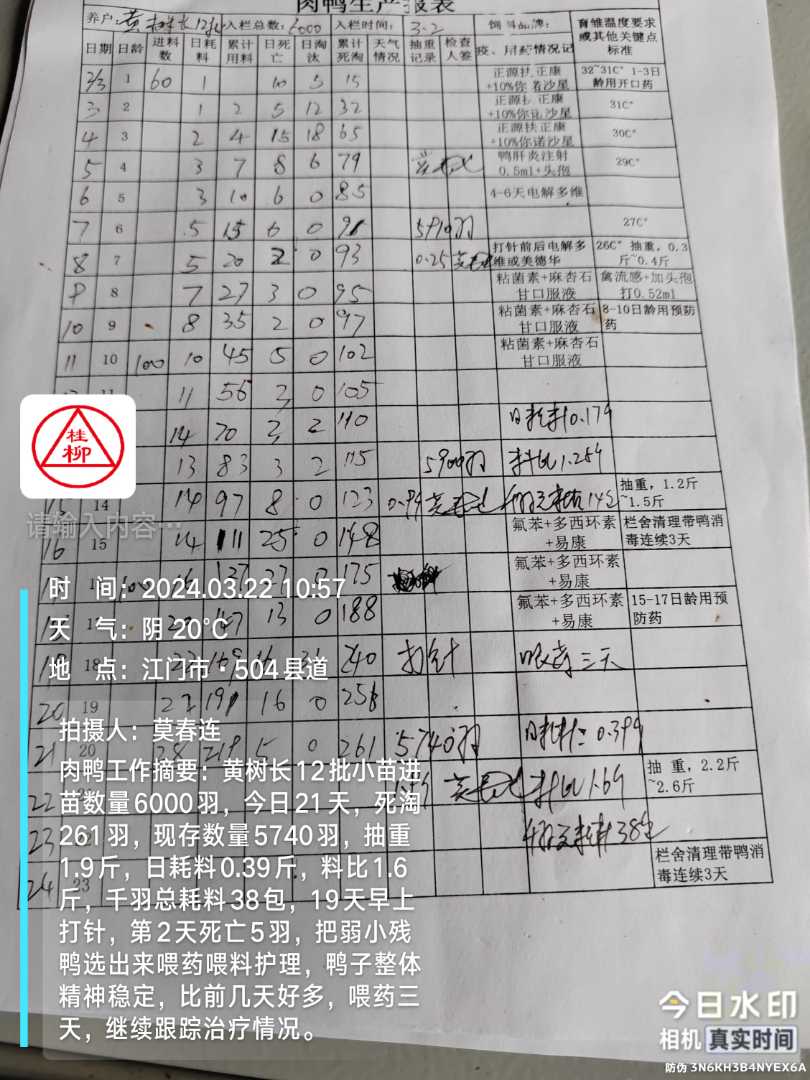 肉鸭生产报表
养户：黄树长12批 入栏总数：6000 入栏时间：3.2 饲料品牌：
育雏温度要求或其他关键点标准
日期 日龄 进料数 日耗料 累计用料 日死亡 日淘汰 累计死淘 天气情况 抽重记录 检查人签 疫、用药情况记
2/3 1 60 1 10 5 15 正源扶正康+10%你诺沙星 32~31C° 1-3日龄用开口药
3 2 1 2 5 12 32 正源扶正康+10%你诺沙星 31C°
4 3 2 4 15 18 65 正源扶正康+10%你诺沙星 30C°
5 4 3 7 8 6 79 鸭肝炎注射0.5ml+头孢 29C°
6 5 3 10 6 0 85 4-6天电解多维
7 6 5 15 6 0 91 5910羽 27C°
8 7 5 20 2 0 93 0.25 打针前后电解多维或美德华 26C° 抽重，0.3斤~0.4斤
9 8 7 27 3 0 95 粘菌素+麻杏石甘口服液 禽流感+加头孢打0.52ml
10 9 8 35 2 0 97 粘菌素+麻杏石甘口服液 8-10日龄用预防药
11 10 100 10 45 5 0 102 粘菌素+麻杏石甘口服液
11 56 3 0 105
14 70 3 2 110 日耗料0.179
13 83 3 2 115 5900羽 料比1.259
15 14 14 97 8 0 123 0.94 抽重，1.2斤~1.5斤
16 15 14 111 25 0 148 氟苯+多西环素+易康 栏舍清理带鸭消毒连续3天
137 27 0 175 氟苯+多西环素+易康
13 0 188 氟苯+多西环素+易康 15-17日龄用预防药
19 18 240 打针 喂药三天
20 19 191 16 0 256
21 20 28 219 5 0 261 5740羽 日耗料：0.399
22 料比1.69 抽重，2.2斤~2.6斤
23 千羽总耗料38包
24 23 栏舍清理带鸭消毒连续3天
桂柳
请输入内容…
时 间：2024.03.22 10:57
天 气：阴 20℃
地 点：江门市·504县道
拍摄人：莫春连
肉鸭工作摘要：黄树长12批小苗进
苗数量6000羽，今日21天，死淘
261羽，现存数量5740羽，抽重
1.9斤，日耗料0.39斤，料比1.6
斤，千羽总耗料38包，19天早上
打针，第2天死亡5羽，把弱小残
鸭选出来喂药喂料护理，鸭子整体
精神稳定，比前几天好多，喂药三
天，继续跟踪治疗情况。
今日水印
相机 真实时间
防伪 3N6KH3B4NYEX6A